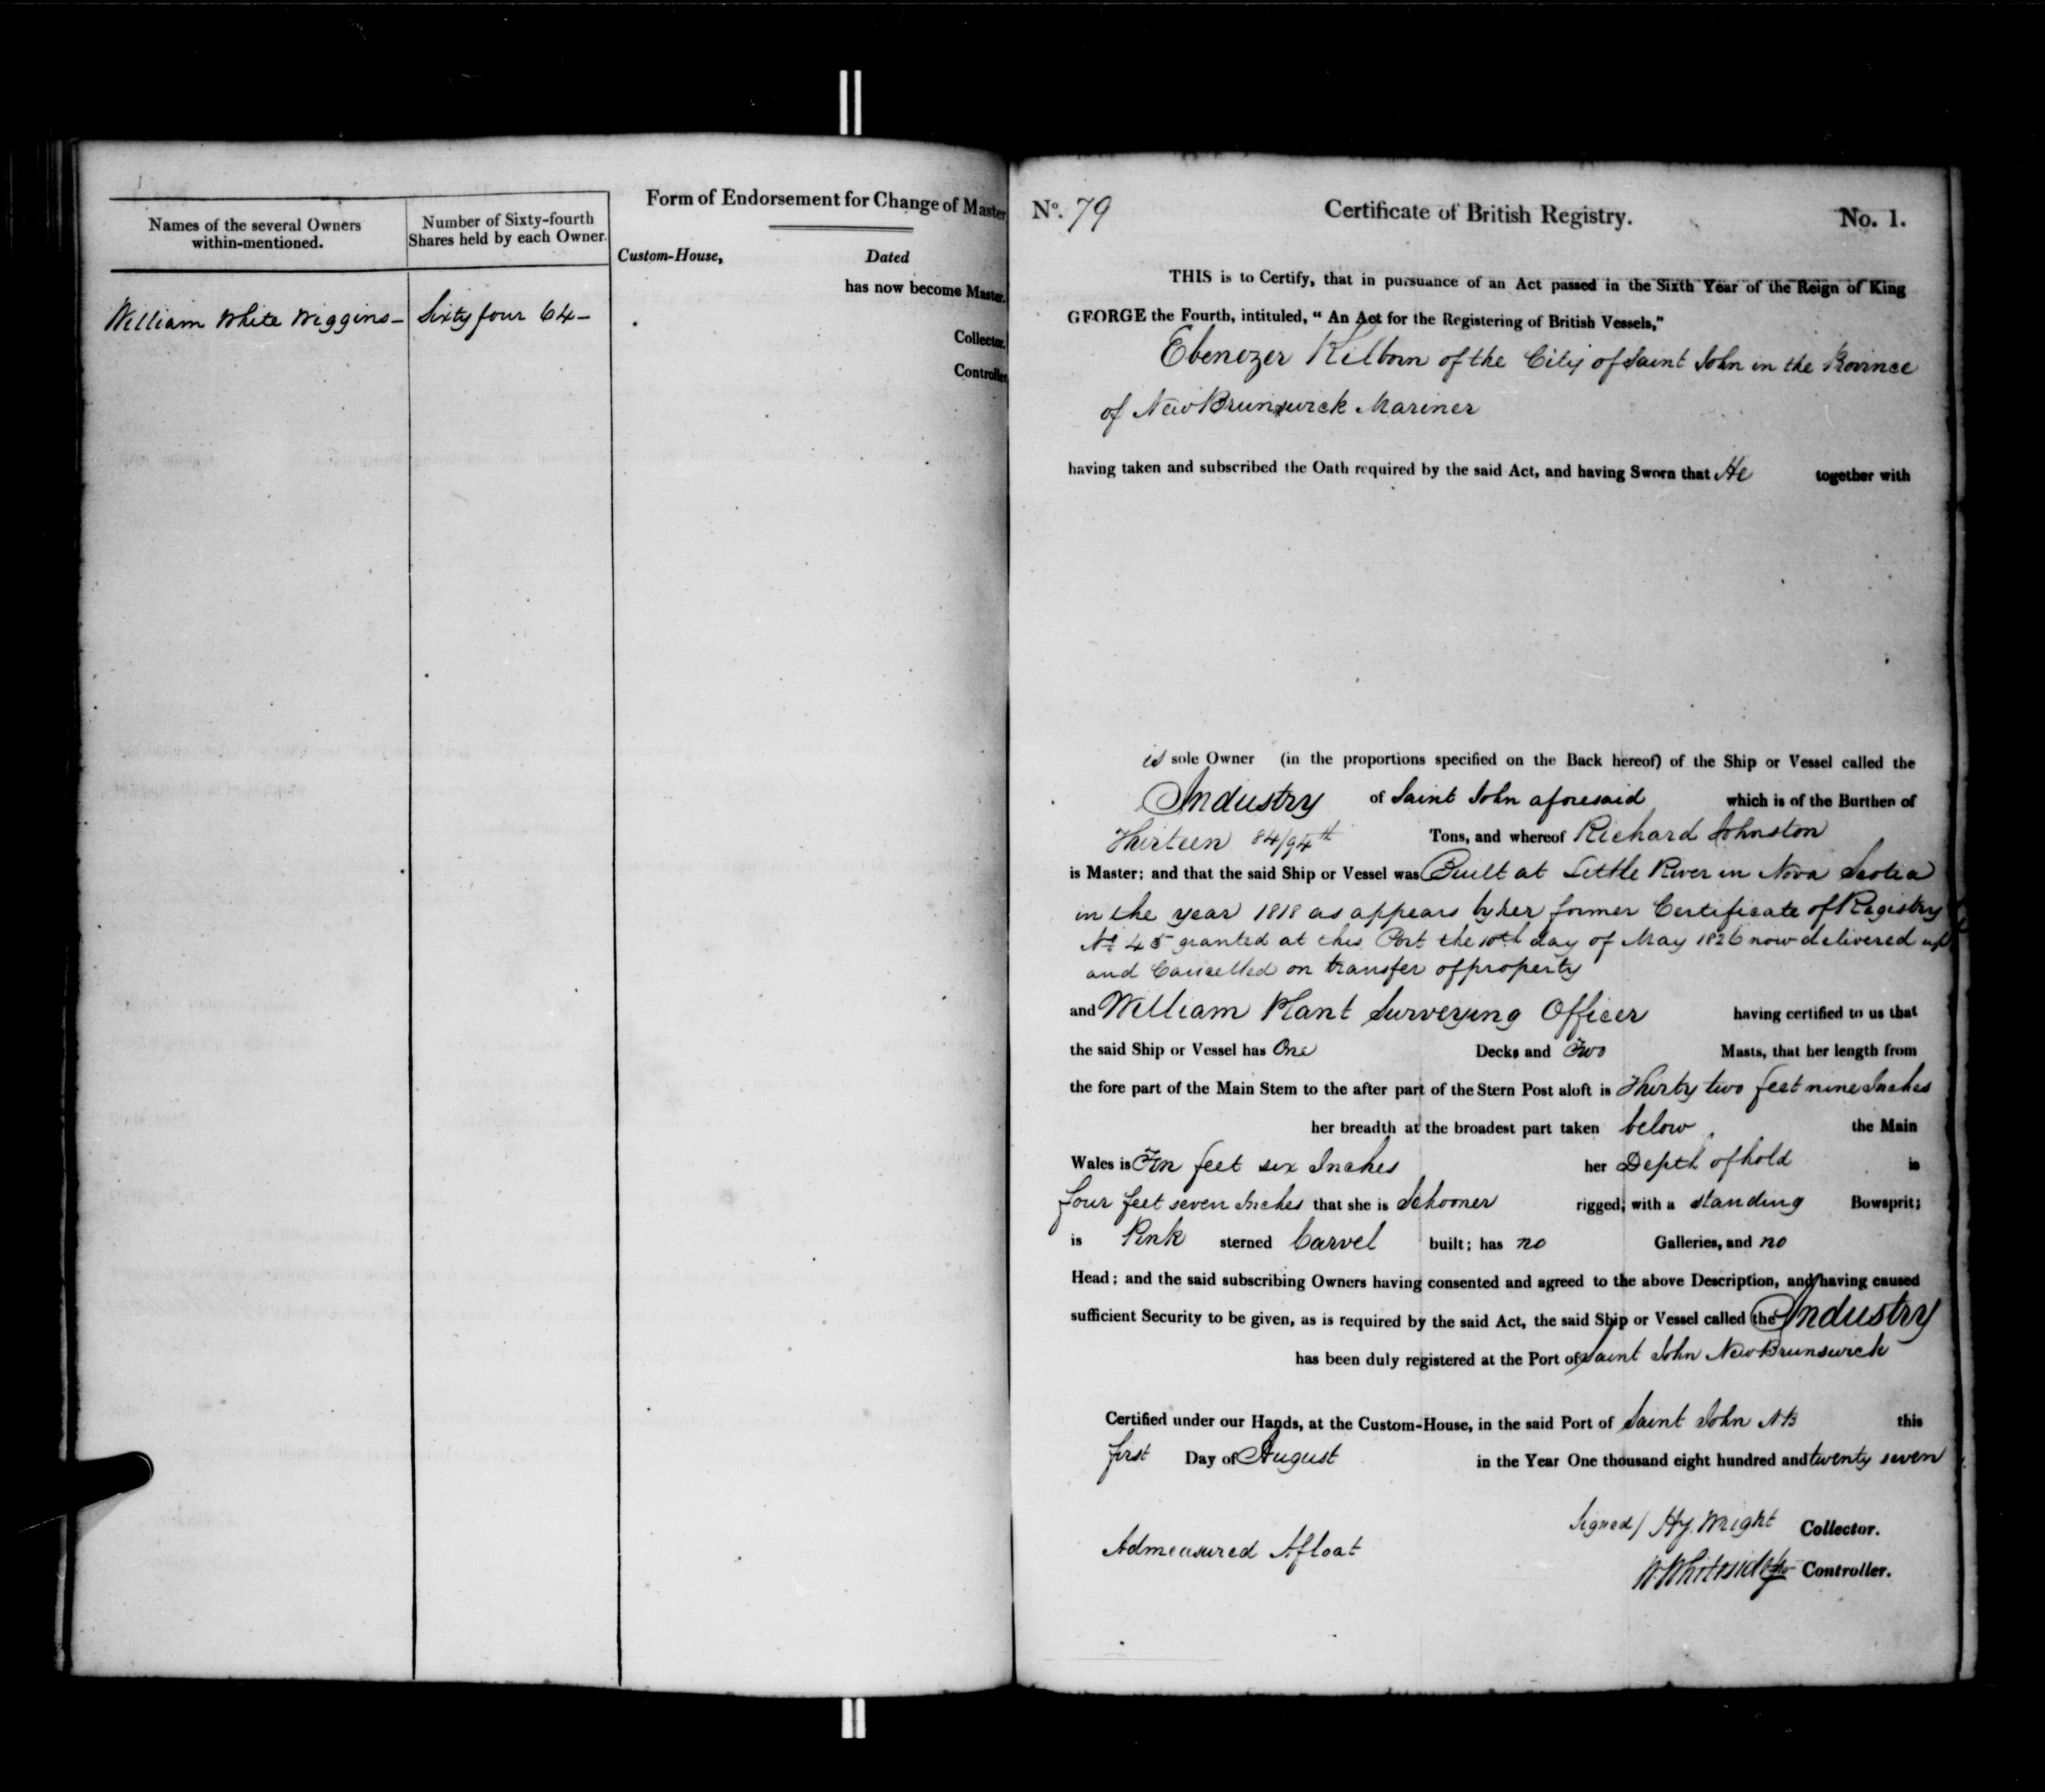 Names of the several Owners
within-mentioned.
Number of Sixty-fourth
Shares held by each Owner.
William White Wiggins–
Sixty four 64–
Form of Endorsement for Change of Master
Custom-House, Dated
has now become Master.
Collector.
Controller
No. 79 Certificate of British Registry. No. 1.
THIS is to Certify, that in pursuance of an Act passed in the Sixth Year of the Reign of King
GEORGE the Fourth, intituled, “ An Act for the Registering of British Vessels,”
Ebenezer Kilborn of the City of Saint John in the Province
of New Brunswick Mariner
having taken and subscribed the Oath required by the said Act, and having Sworn that He together with
is sole Owner (in the proportions specified on the Back hereof) of the Ship or Vessel called the
Industry of Saint John aforesaid which is of the Burthen of
Thirteen 84/94th Tons, and whereof Richard Johnston
is Master; and that the said Ship or Vessel was Built at Little River in Nova Scotia
in the year 1818 as appears by her former Certificate of Registry
No 45 granted at this Port the 10th day of May 1826 now delivered up
and Cancelled on transfer of property
and William Plant Surveying Officer having certified to us that
the said Ship or Vessel has One Decks and Two Masts, that her length from
the fore part of the Main Stem to the after part of the Stern Post aloft is Thirty two feet nine Inches
her breadth at the broadest part taken below the Main
Wales is Ten feet six Inches her Depth of hold is
four feet seven Inches that she is Schooner rigged; with a standing Bowsprit;
is Pink sterned Carvel built; has no Galleries, and no
Head; and the said subscribing Owners having consented and agreed to the above Description, and having caused
sufficient Security to be given, as is required by the said Act, the said Ship or Vessel called the Industry
has been duly registered at the Port of Saint John New Brunswick
Certified under our Hands, at the Custom-House, in the said Port of Saint John NB this
first Day of August in the Year One thousand eight hundred and twenty seven
Signed/ Hy. Wright Collector.
Admeasured Afloat
W. Whiteside Controller.